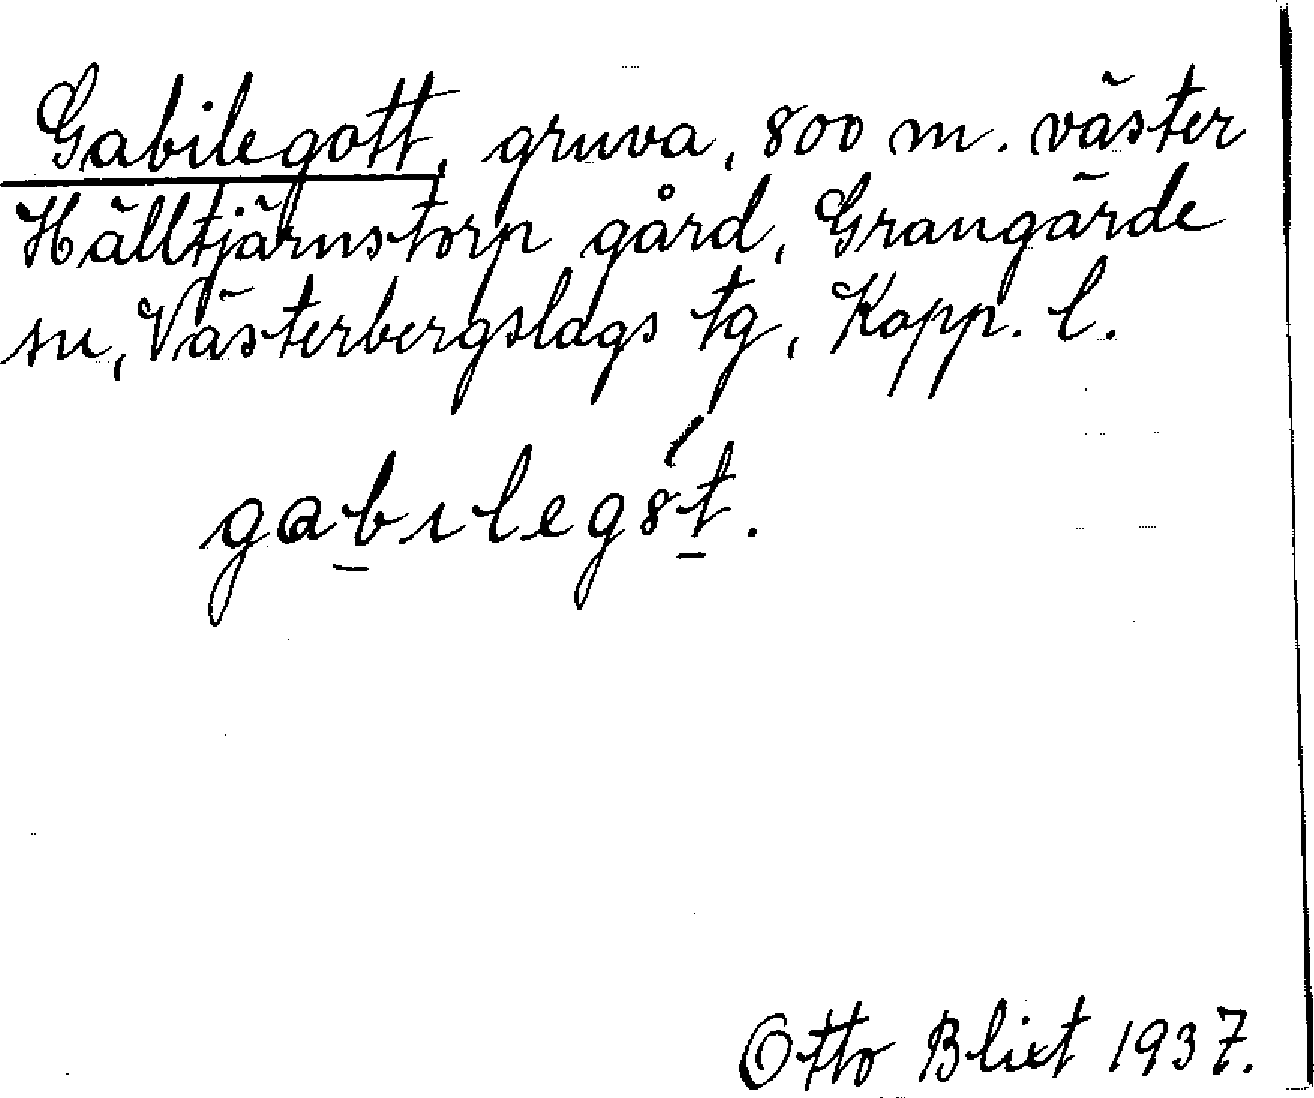 Gabilegott, gruva, 800 m. väster
Hälltjärnstorp gård, Grangärde
sn, Västerbergslags tg, Kopp. l.
gabɩlegȣ́t.
Otto Blixt 1937.